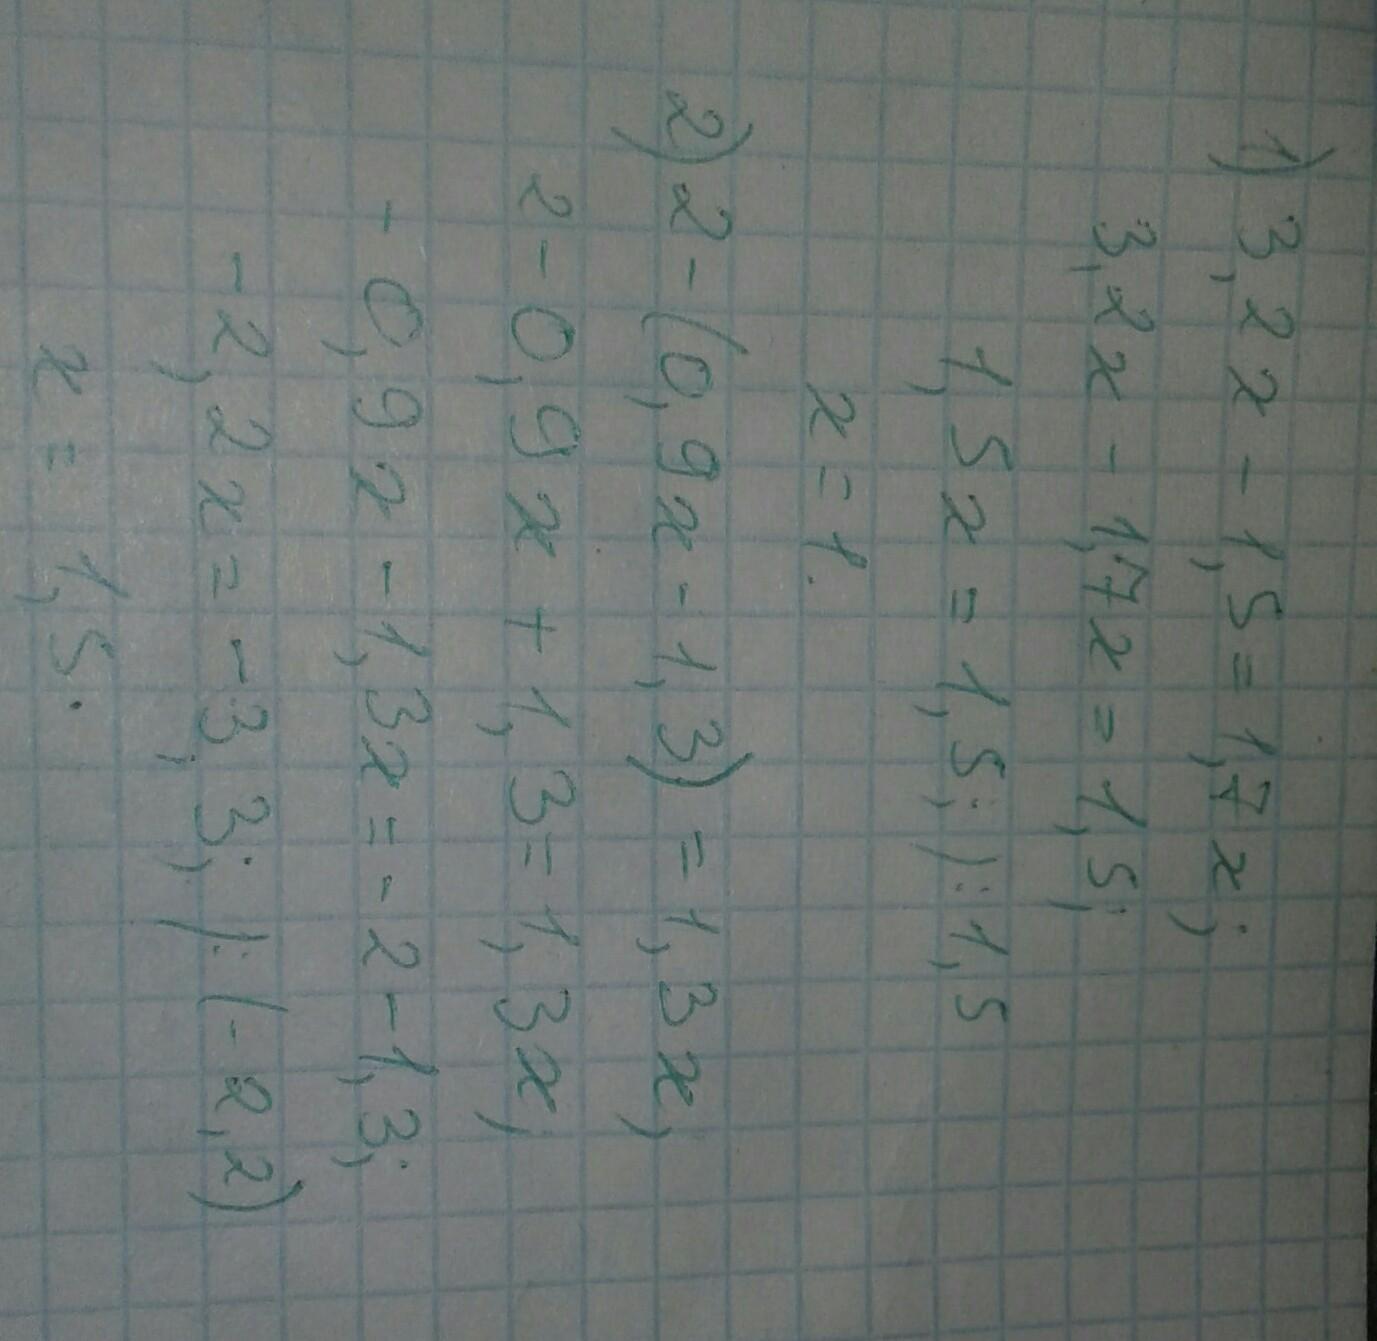 1) 3,2x - 1,5 = 1,7x;
3,2x - 1,7x = 1,5;
1,5x = 1,5; /:1,5
x = 1.
2) 2 - (0,9x - 1,3) = 1,3x;
2 - 0,9x + 1,3 = 1,3x;
- 0,9x - 1,3x = - 2 - 1,3;
- 2,2x = - 3,3; /: (- 2,2)
x = 1,5.